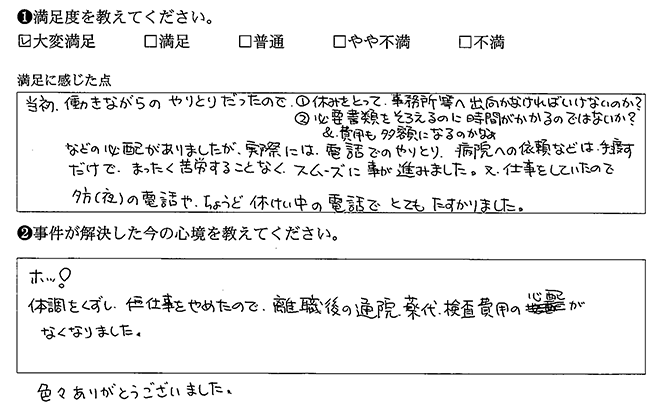 ❶満足度を教えてください。
☑大変満足 □満足 □普通 □やや不満 □不満
満足に感じた点
当初、働きながらの やりとりだったので、①休みをとって、事務所等へ出向かなければいけないのか?
②必要書類をそろえるのに時間がかかるのではないか?
&費用も多額になるのかなぁ
などの心配がありましたが、実際には、電話でのやりとり、病院への依頼などは、手渡す
だけで、まったく苦労することなく、スムーズに事が進みました。又、仕事をしていたので
夕方(夜)の電話や、ちょうど休けい中の電話でとてもたすかりました。
❷事件が解決した今の心境を教えてください。
ホッ!
体調をくずし、仕事をやめたので、離職後の通院、薬代、検査費用の心配が
なくなりました。
色々ありがとうございました。